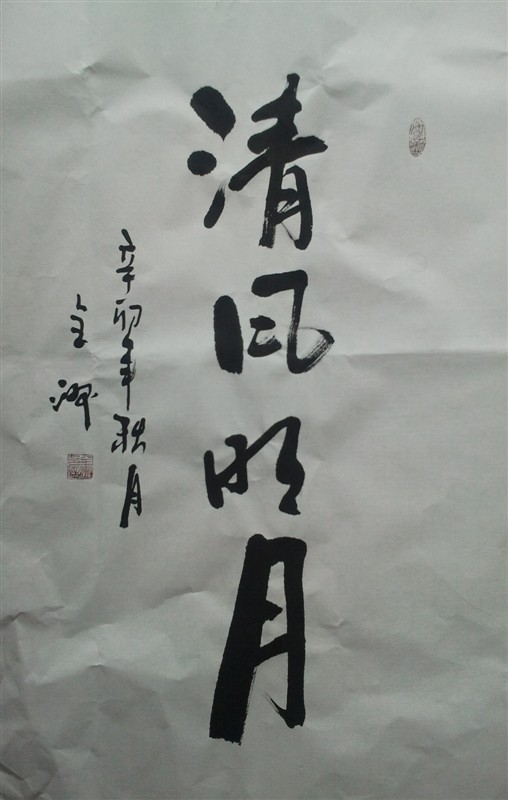 清风明月
辛卯年秋月